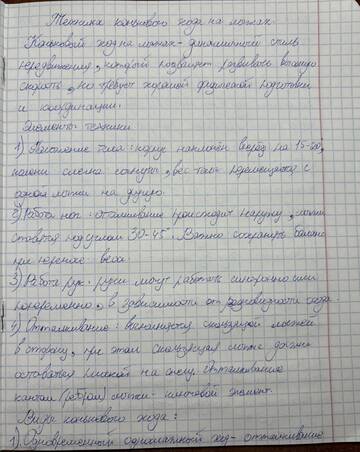 Техника конькового хода на лыжах.
Коньковый ход на лыжах - динамичный стиль
передвижения, который позволяет развивать высокую
скорость, но требует хорошей физической подготовки
и координации.
Элементы техники
1) Положение тела: корпус наклонён вперёд на 15-20°,
колени слегка согнуты, вес тела перемещается с
одной лыжи на другую.
2) Работа ног: отталкивание происходит наружу, лыжи
ставятся под углом 30-45°. Важно сохранять баланс
при переносе веса.
3) Работа рук: руки могут работать синхронно или
попеременно, в зависимости от разновидности хода.
4) Отталкивание: выполняется скользящей лыжей
в сторону, при этом скользящая лыжа должна
оставаться плоской на снегу. Отталкивание
кантом (ребром) лыжи - ключевой элемент.
Виды конькового хода:
1) Одновременный одношажный ход - отталкивание